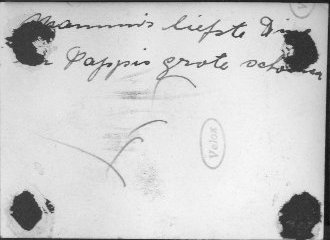 Mammies liefste Dine
en Pappie grote schoon
Velox